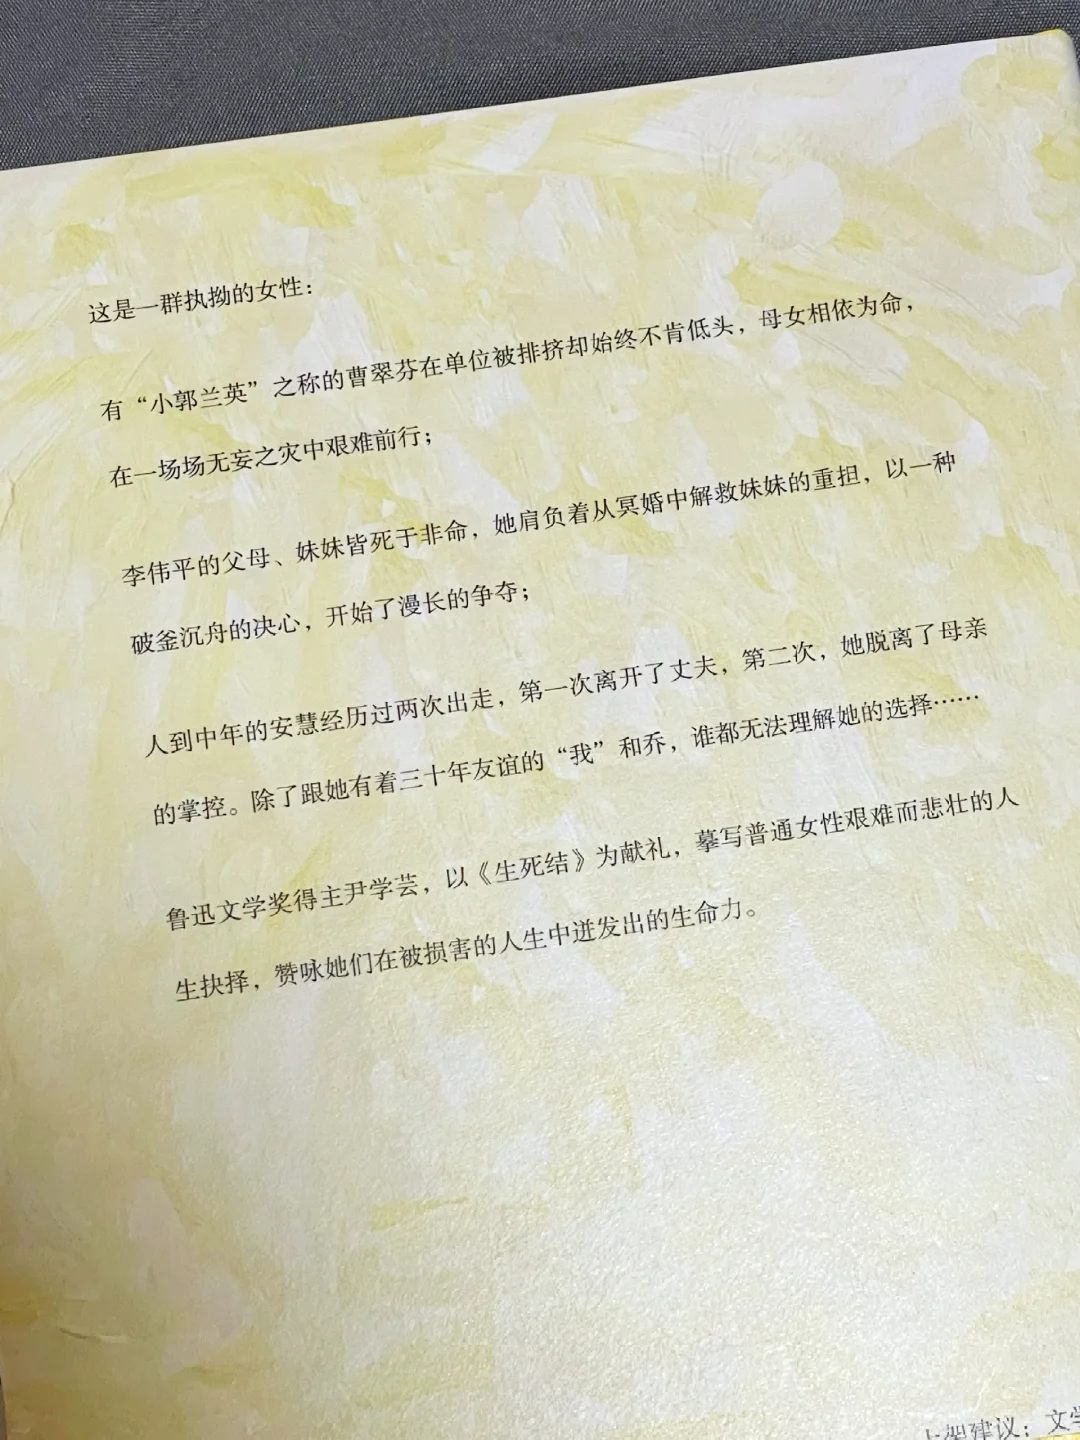 这是一群执拗的女性：
有“小郭兰英”之称的曹翠芬在单位被排挤却始终不肯低头，母女相依为命，
在一场场无妄之灾中艰难前行；
李伟平的父母、妹妹皆死于非命，她肩负着从冥婚中解救妹妹的重担，以一种
破釜沉舟的决心，开始了漫长的争夺；
人到中年的安慧经历过两次出走，第一次离开了丈夫，第二次，她脱离了母亲
的掌控。除了跟她有着三十年友谊的“我”和乔，谁都无法理解她的选择……
鲁迅文学奖得主尹学芸，以《生死结》为献礼，摹写普通女性艰难而悲壮的人
生抉择，赞咏她们在被损害的人生中迸发出的生命力。
上架建议：文学